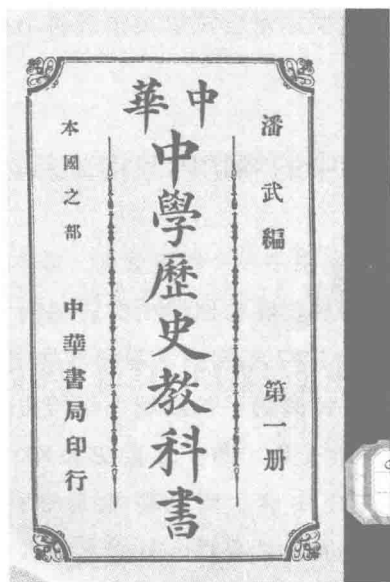 潘武編 第一册
中華
中學歷史教科書
本國之部 中華書局印行